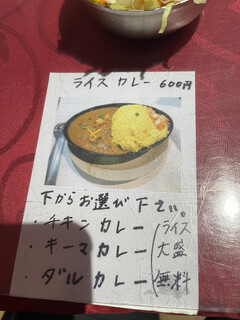 ライス カレー 600円
下からお選び下さい。
・チキンカレー
・キーマカレー
・ダルカレー
ライス
大盛
無料